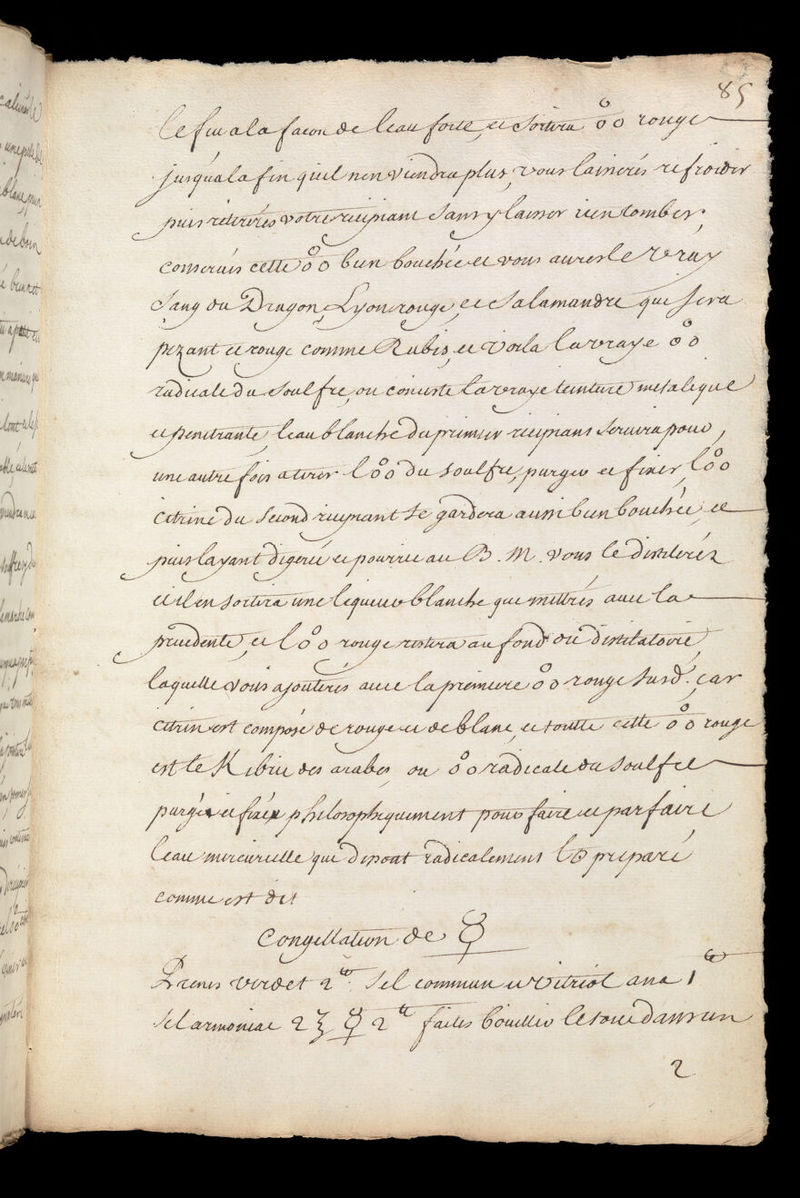 85
le feu a la facon de leau forte, et sortira o°o rouge
jusqua la fin quil nen viendra plus, vous laisserés refroidir
puis retirerés votre recipiant sans y laisser rien tomber.
conservés cette o°o bien bouchée et vous aurés le vray
sang du Dragon, Lyon rouge, et Salamandre qui sera
pezant et rouge comme Rubis, et voila la vraye o°o
radicale du soulfre, ou consiste la vraye teinture metalique
et penetrante, leau blanche du premier recipiant servira pour
une autre fois a tirer lo°o du soulfre, purger et fixer, lo°o
citrine du second recipiant se gardera aussi bien bouchée, et
puis layant digeré et pourrie au B. M. vous le distilerés
et il en sortira une liqueur blanche que mettrés avec la
precedente, et lo°o rouge restera au fond du distilatoire,
laquelle vous ajouterés avec la premiere o°o rouge susd. car
citrin est composé de rouge et de blanc, et toutte cette o°o rouge
est le Kibrit des arabes, ou o°o radicale du soulfre
purgé et fixé philosophiquement pour faire et parfaire
leau mercurielle qui dissout radicalement l☉ preparé
comme est dit
Congellation de ☿
Prenés verdet 2 lb. sel commun et vitriol ana 1 lb
sel armoniac 2 ℥ ☿ 2 lb faites bouillir le tout dans un
2